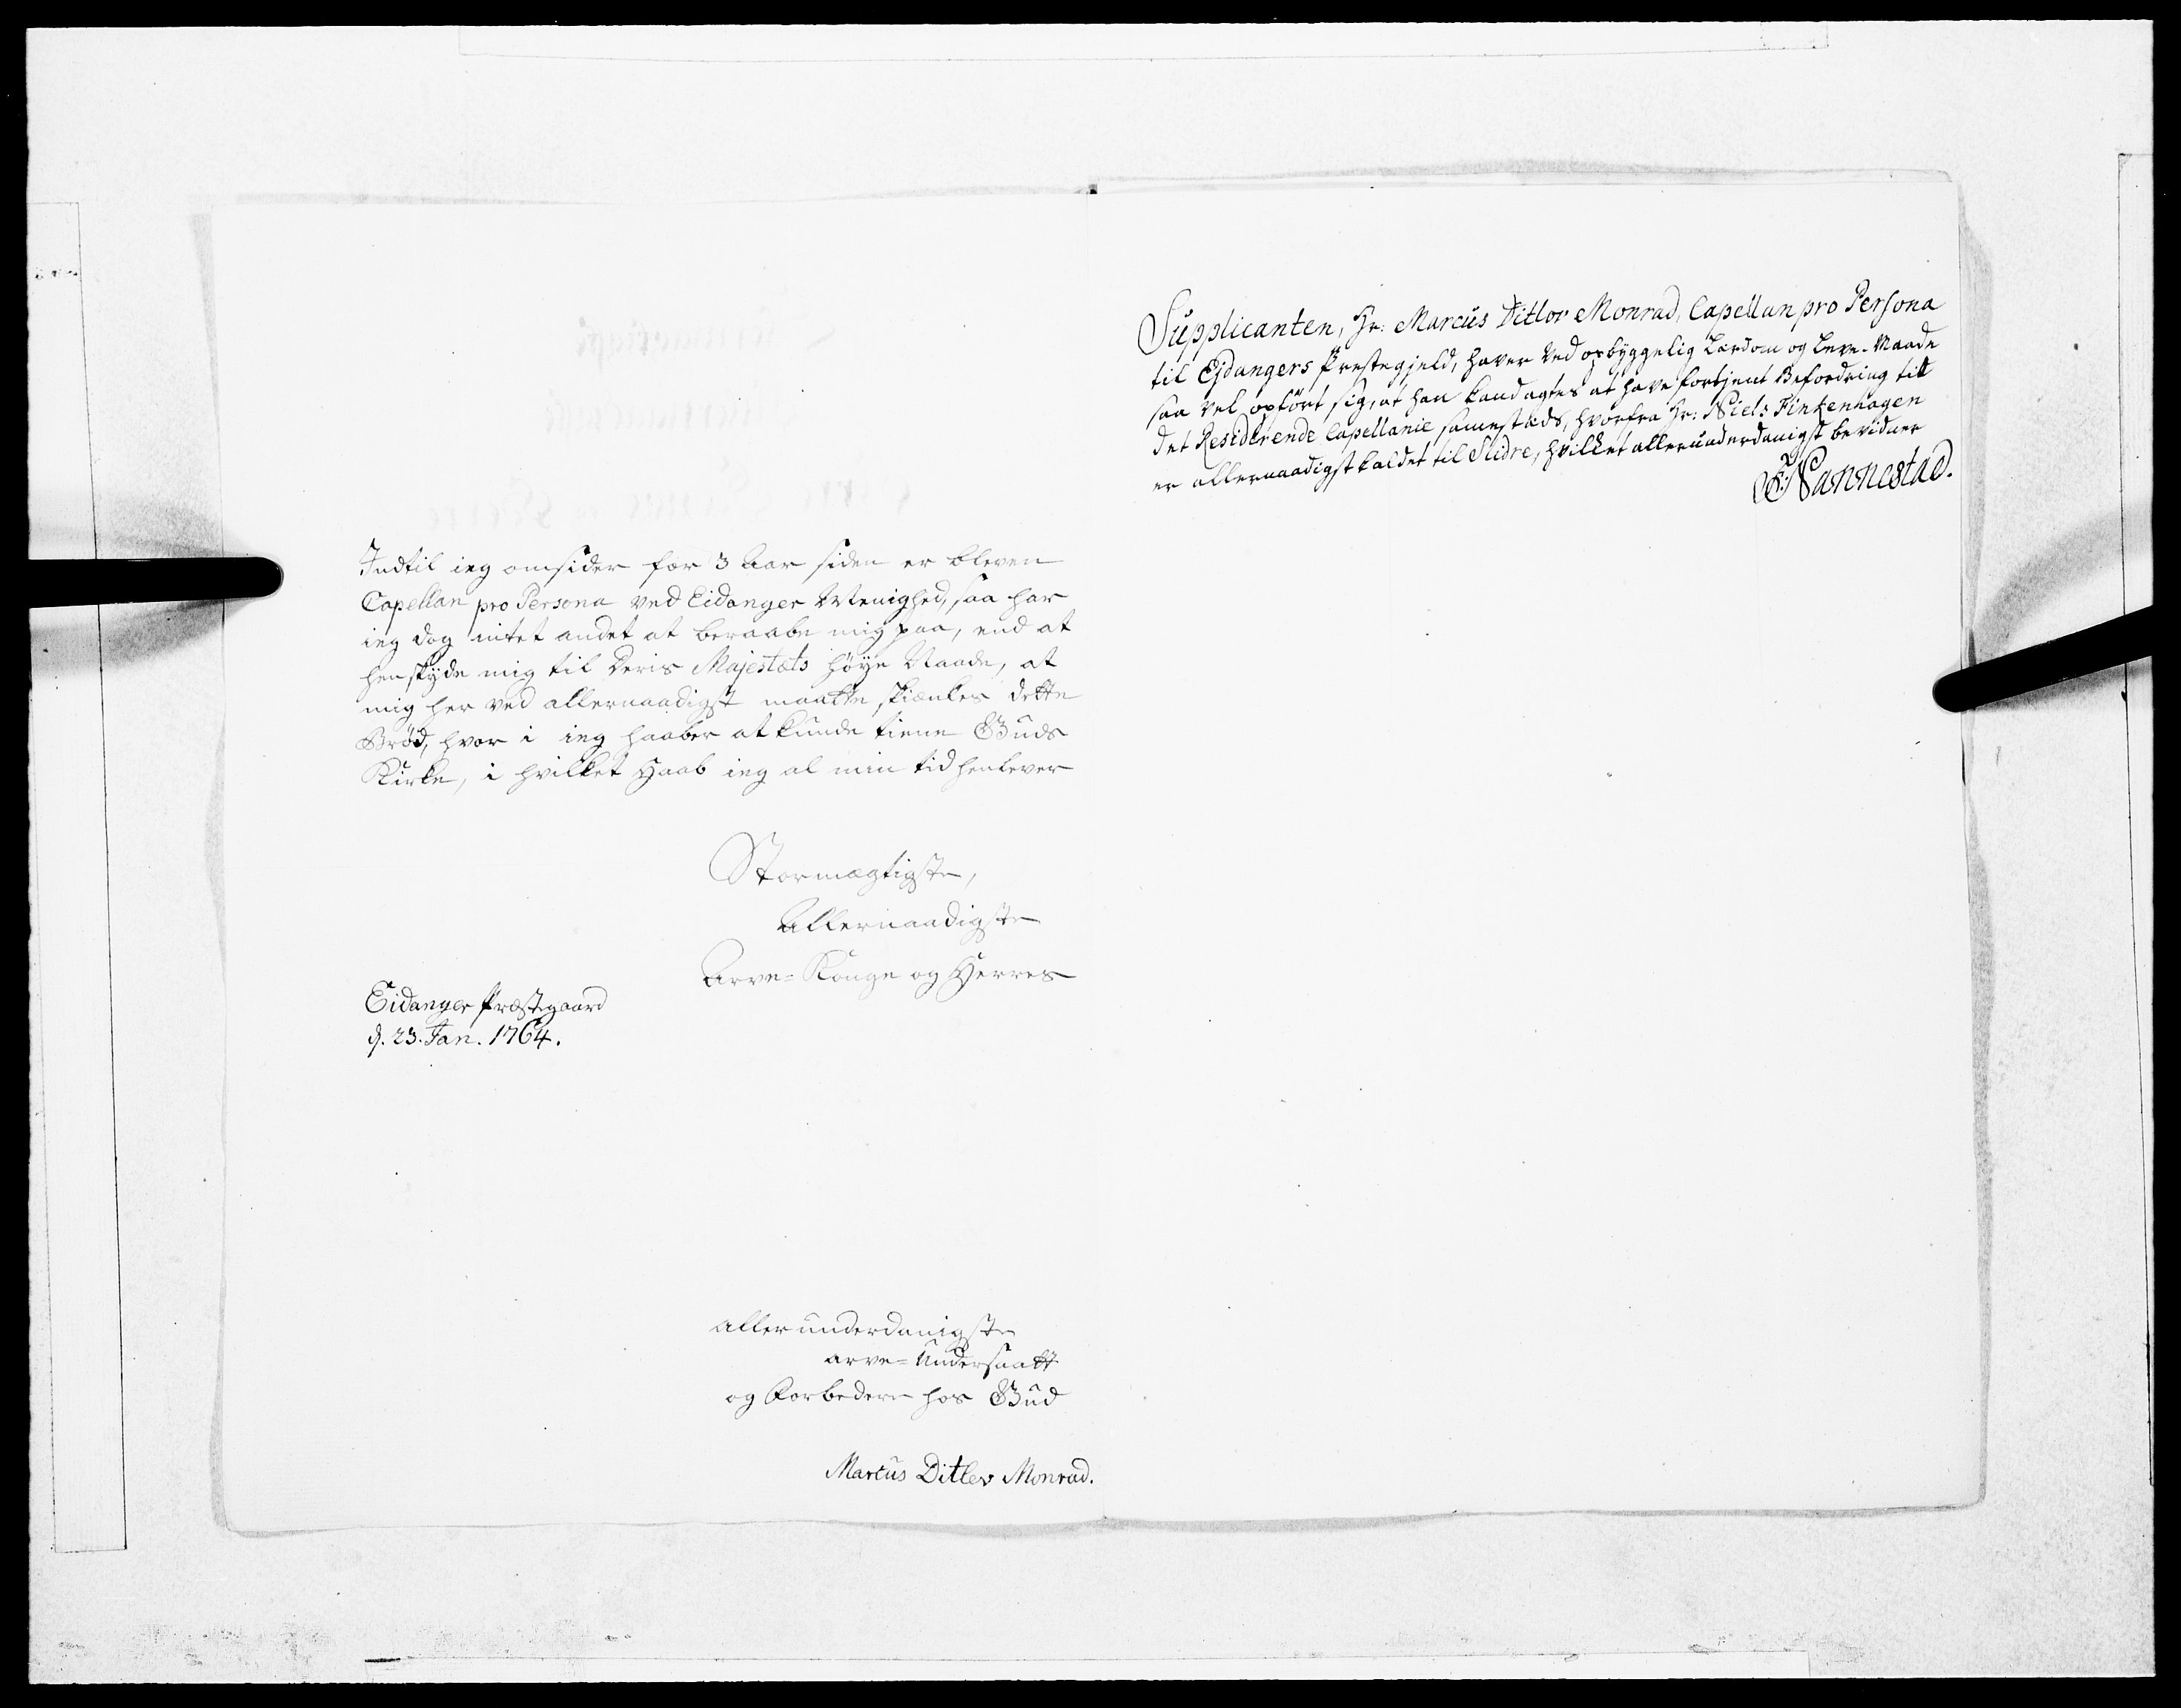 Indtil ieg omsider for 3 Aar siden er bleven
Capellan pro Persona ved Eidanger Menighed, saa har
ieg dog intet andet at beraabe mig paa, end at
henskyde mig til Deris Majestæts høye Naade, at
mig her ved allernaadigst maatte skiænkes dette
Brød, hvor i ieg haaber at kunde tiene Guds
Kirke, i hvilket Haab ieg al min tid henlever
Stormægtigste,
Allernaadigste
Arve-Konge og Herres
Eidanger Præstegaard
d. 23. Jan. 1764.
allerunderdanigste
arve-Undersaatt
og Forbedere hos Gud
Marcus Ditlev Monrad.
Supplicanten, Hr: Marcus Ditlov Monrad, Capellan pro Persona
til Ejdangers Prestegjeld, haver ved opbyggelig Lærdom og Leve-Maade
saa vel opført sig, at han kand agtes at have fortjent Befordring til
det Residerende Capellanie samestæds, hvorfra Hr: Niels Finkenhagen
er allernaadigst kaldet til Slidre, hvilket allerunderdanigst bevidner
F: Nannestad.